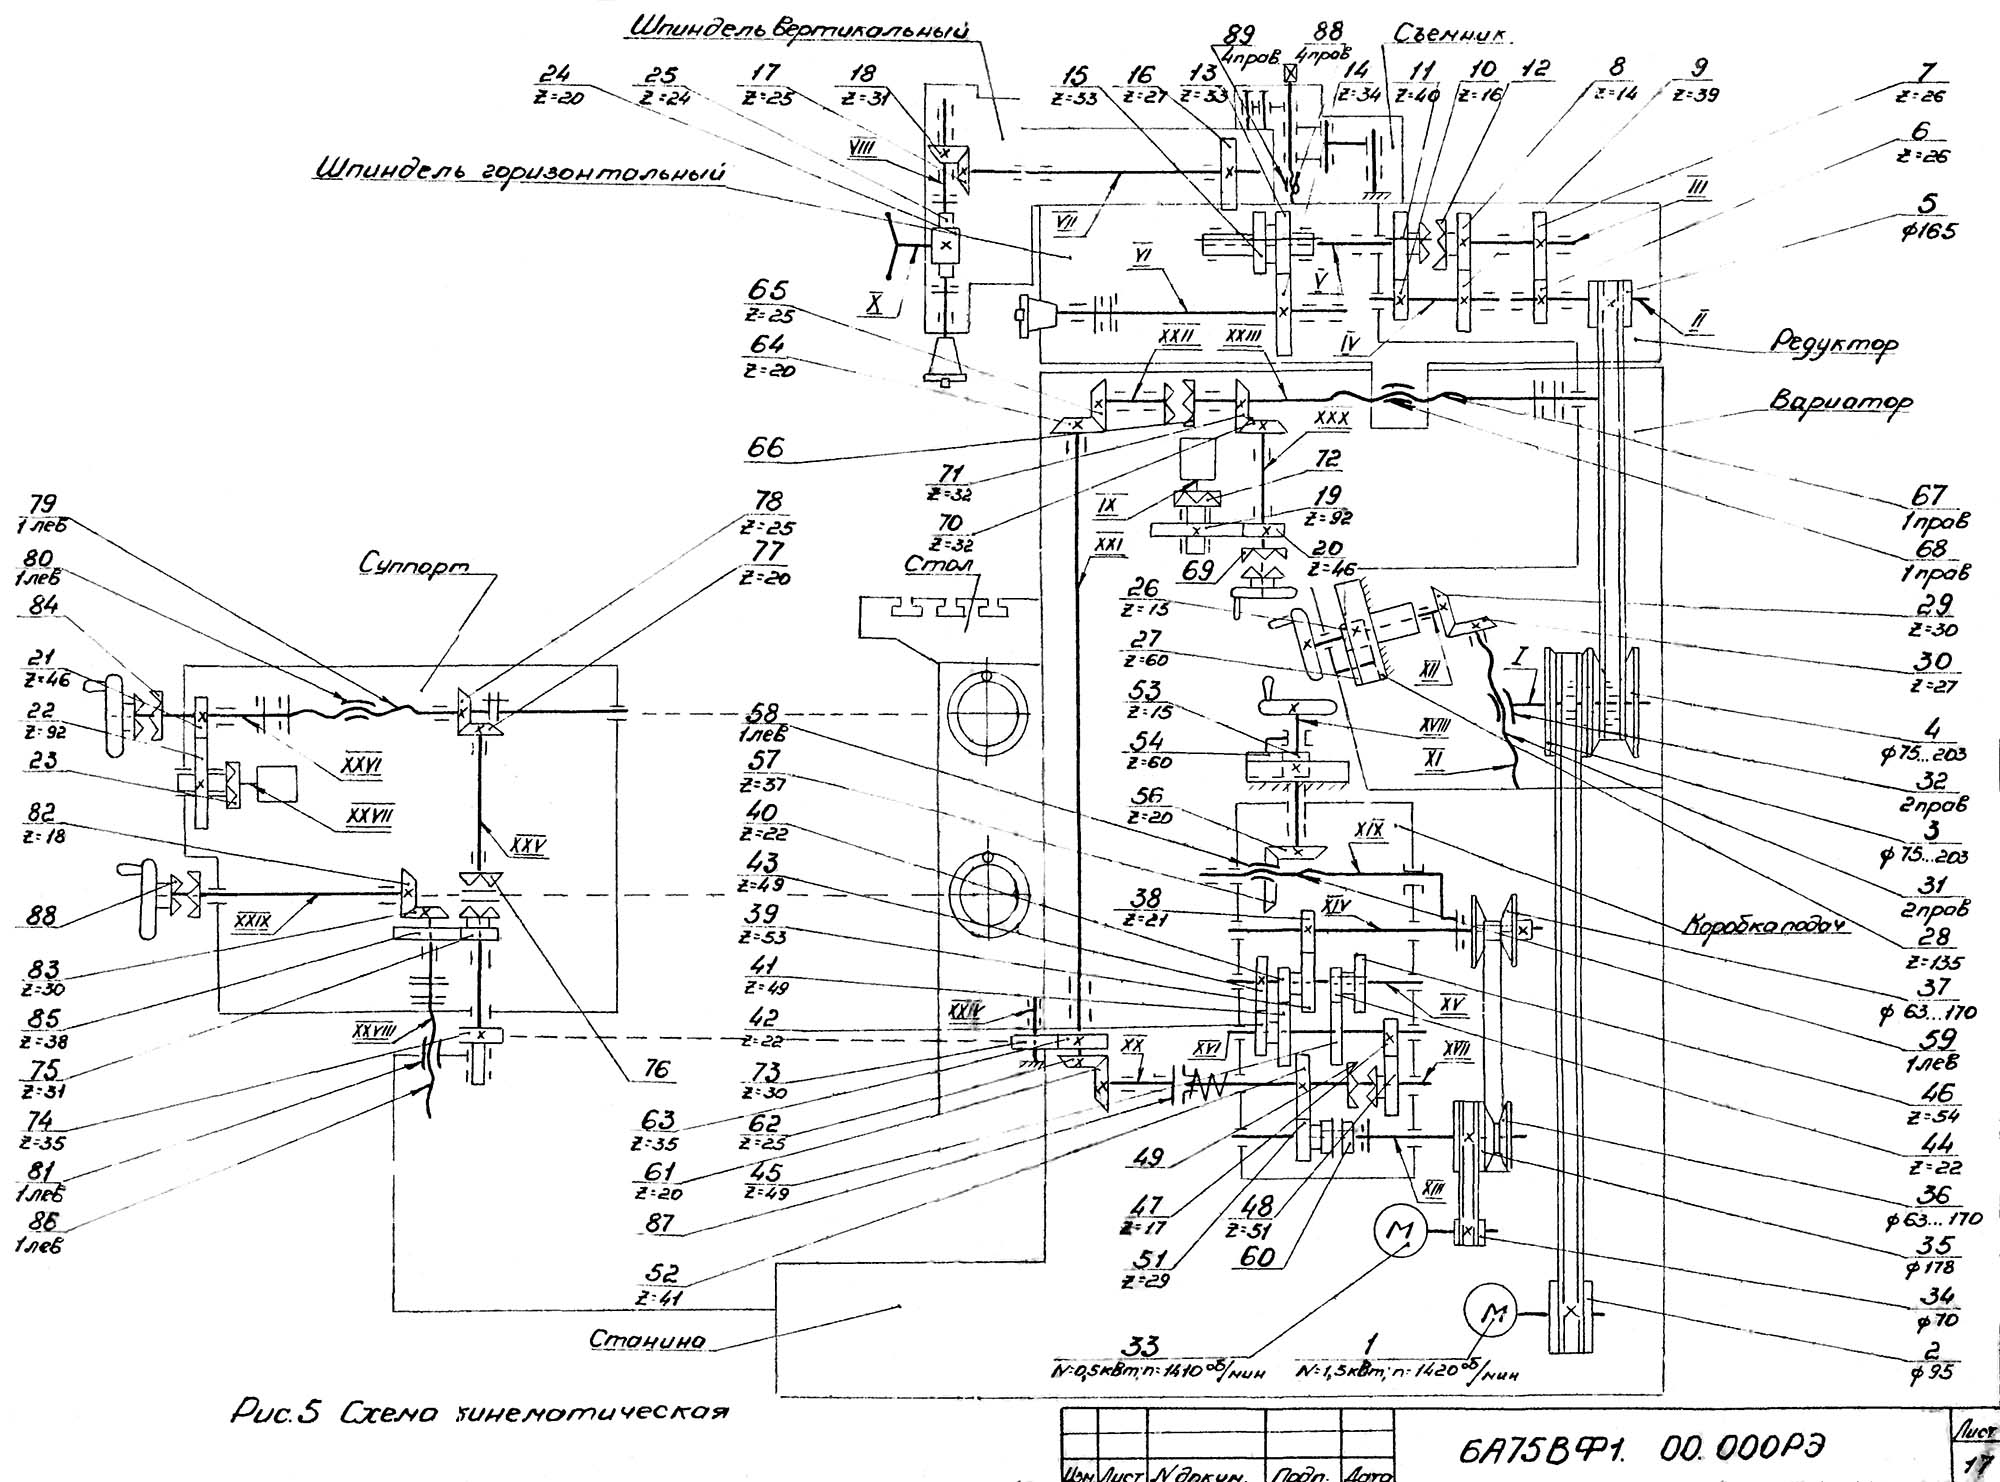 Шпиндель вертикальный
Съемник
24
Z=20
25
Z=24
17
Z=25
18
Z=31
15
Z=33
16
Z=27
13
Z=33
89
4прав
88
4прав
14
Z=34
11
Z=40
10
Z=16
12
8
Z=14
9
Z=39
7
Z=26
6
Z=26
5
ф165
Шпиндель горизонтальный
VIII
VII
III
X
VI
V
IV
II
Редуктор
65
Z=25
64
Z=20
XXII
XXIII
Вариатор
66
XXX
71
Z=32
72
70
Z=32
IX
19
Z=92
XXI
20
Z=46
69
67
1прав
68
1прав
79
1лев
80
1лев
84
Суппорт
78
Z=25
77
Z=20
Стол
26
Z=15
27
Z=60
29
Z=30
30
Z=27
I
XII
21
Z=46
22
Z=92
23
XXVI
XXVII
58
1лев
53
Z=15
54
Z=60
57
Z=37
XVIII
XI
4
ф75...203
32
2прав
3
ф75...203
31
2прав
28
Z=135
82
Z=18
XXV
40
Z=22
56
Z=20
XIX
43
Z=49
38
Z=21
XIV
Коробка подач
88
XXIX
39
Z=53
41
Z=49
42
Z=22
83
Z=30
85
Z=38
XXVIII
XXIV
XV
XVI
XX
XVII
37
ф63...170
59
1лев
75
Z=31
76
73
Z=30
46
Z=54
74
Z=35
63
Z=35
62
Z=25
49
44
Z=22
81
1лев
61
Z=20
45
Z=49
47
Z=17
48
Z=51
XIII
36
ф63...170
86
1лев
87
51
Z=29
60
М
35
ф178
52
Z=41
34
ф70
Станина
М
33
N=0,5кВт; n=1410об/мин
1
N=1,5кВт; n=1420об/мин
2
ф95
Рис.5 Схема кинематическая
6А75ВФ1. 00.000РЭ
Лист
17
Изм Лист N докум. Подп. Дата